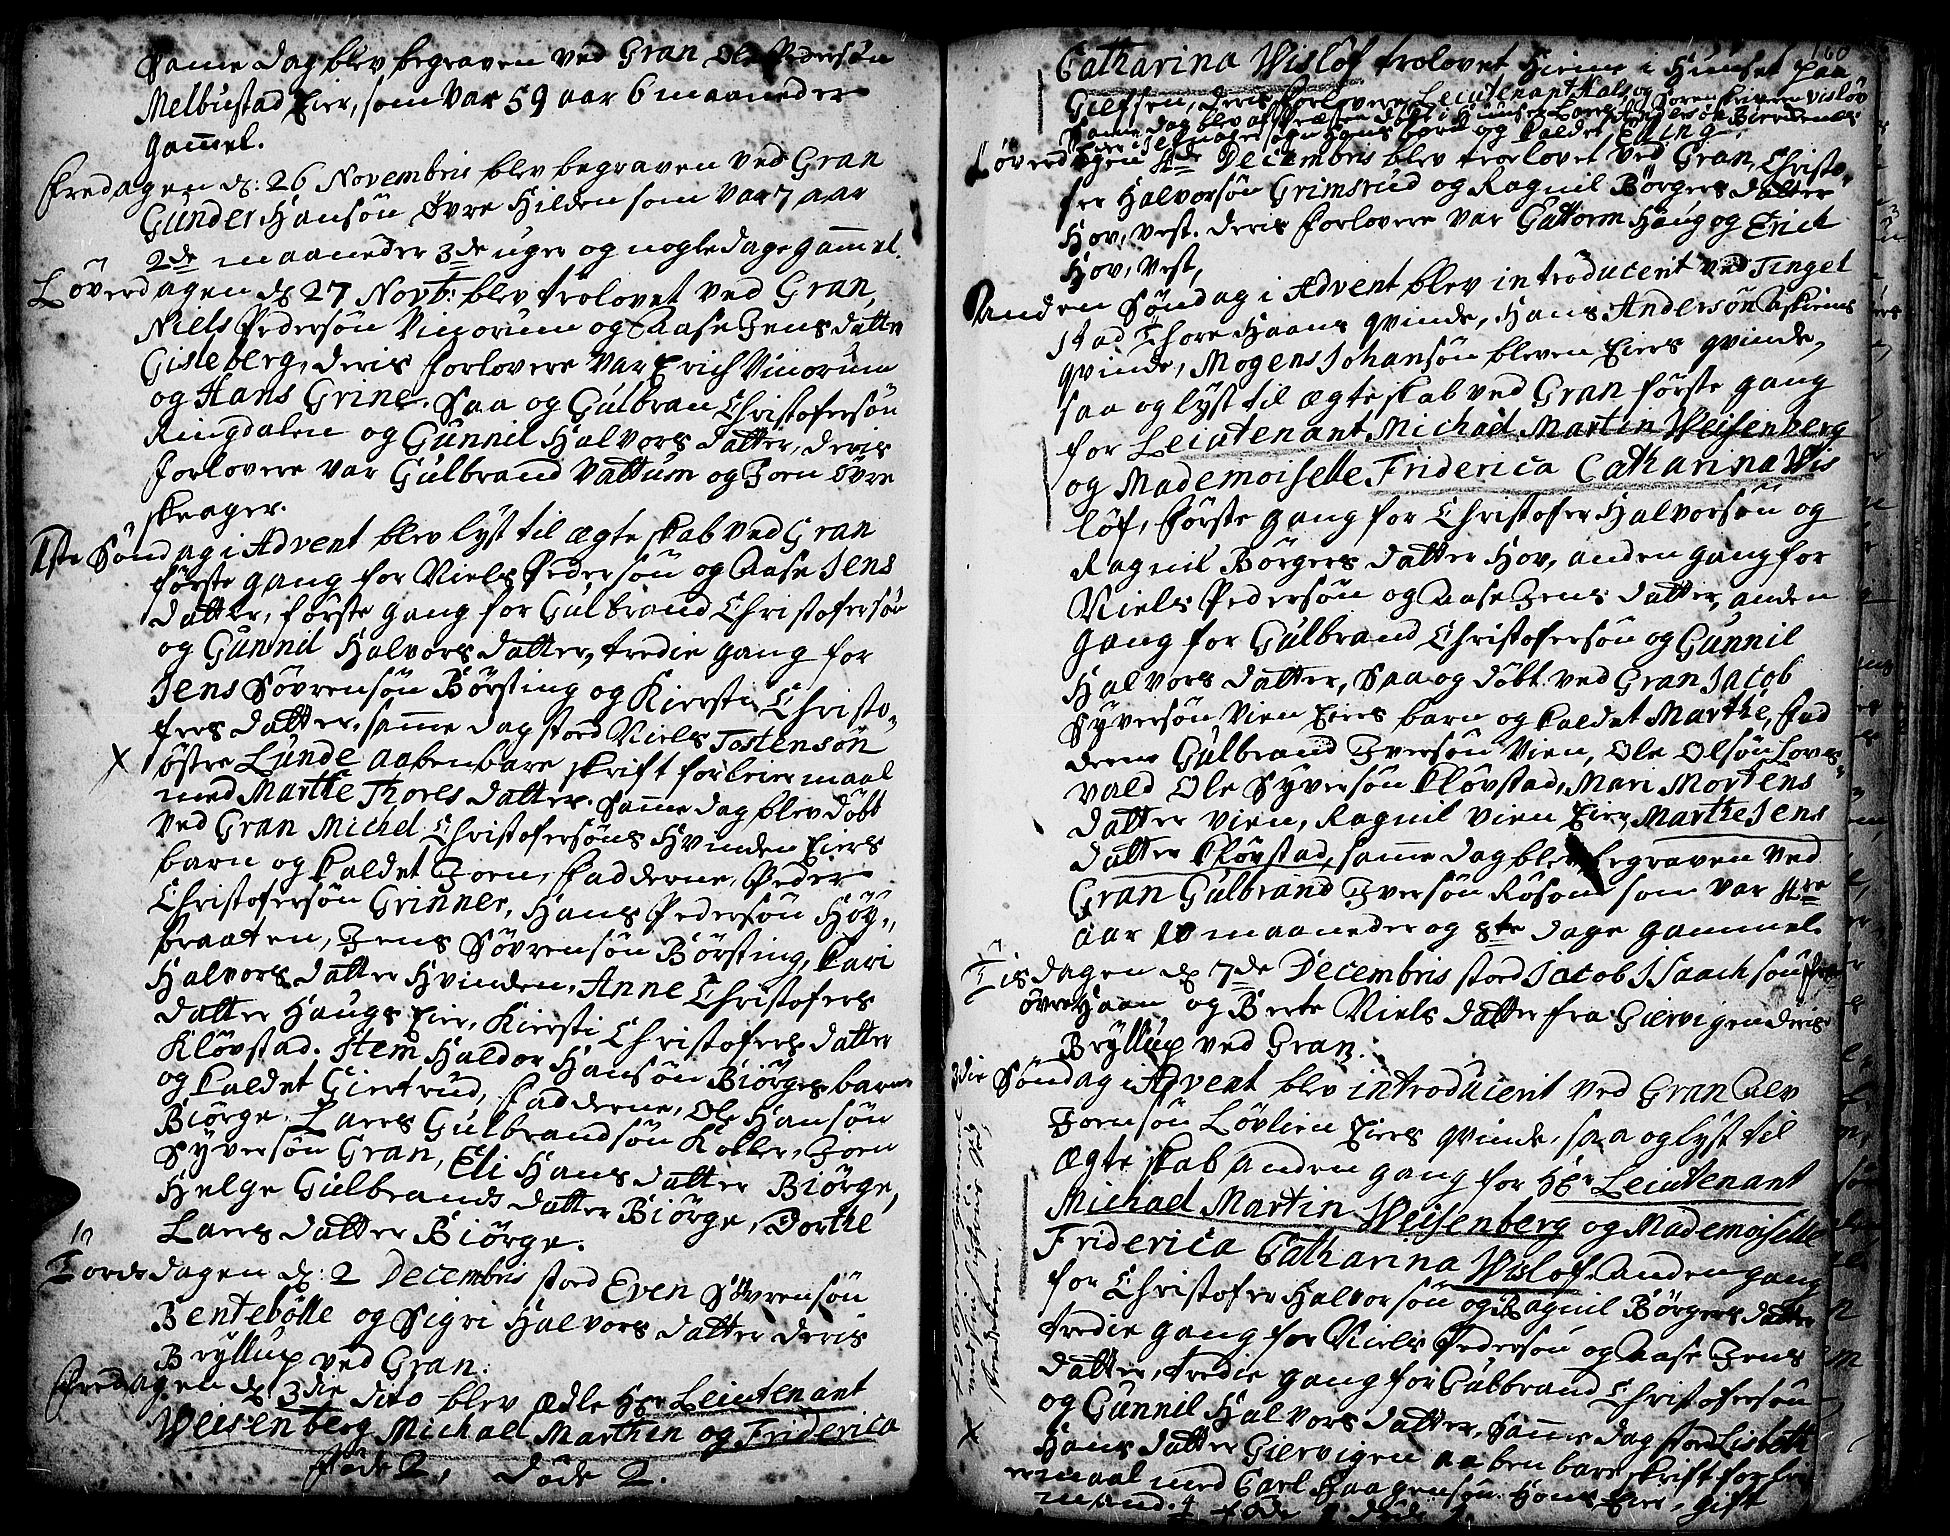 Same dag blev begraven ved Gran Ole Pedersøn
Melbustad Eier, som var 59 aar 6 maaneder
gammel.
Fredagen d: 26 Novembris blev begraven ved Gran
Gunder Hansøn Øvre Hilden som var 7 aar
2de maaneder 3de uger og nogle dage gammel.
Løverdagen d 27 Novb: blev trolovet ved Gran,
Niels Pedersøn Vinorum og Aase Jens datter
Gisleberg, deris forlovere var Erich Vinorum
og Hans Grine. Saa og Gulbran Christofersøn
Ringdalen og Gunnil Halvors datter, deris
forlovere var Gulbrand Vattum og Joen Øvre
Skeager.
1ste Søndag i Advent blev lyst til ægteskab ved Gran
første gang for Niels Pedersøn og Aase Jens
datter, første gang for Gulbrand Christofersøn
og Gunnil Halvors datter, tredie gang for
Jens Søvrensøn Børsting og Kiersti Christo-
fers datter. samme dag stod Niels Tostensøn
østre Lunde aabenbare skrift for leiermaal
med Marthe Thores datter. Samme dag blev døbt
ved Gran Michel Christofersøns Hvinden Eiers
barn og kaldet Joen, fadderne, Peder
Christofersøn Grinner, Hans Pedersøn Høy-
braaten, Jens Søvrensøn Børsting, Kari
Halvors datter Hvinden, Anne Christofers
datter Haugs Eier, Kiersti Christofers datter
Kløvstad. Item Haldor Hansøn Biørges barn
og kaldet Giertrud, fadderne, Ole Hansøn
Biørge, Lars Gulbrandsøn Koller, Joen
Syversøn Gran, Eli Hans datter Biørge,
Helge Gulbrands datter Biørge, Dorthe
Lars datter Biørge.
Torsdagen d: 2 Decembris stod Even Søvrensøn
Bentebølle og Sigri Halvors datter deris
Bryllup ved Gran.
Fredagen d 3die dito blev ædle Hr Leiutenant
Weisenberg Michael Marthin og Friderica
Føde 2, Døde 2.
160
Catharina Wisløf trolovet hieme i Huuset paa
Gielsen, deris forlovere Leiutenant Kals og Sorenskriveren Visløv
Løverdagen 4de Decembris blev trolovet ved Gran, Christo-
fer Halvorsøn Grimsrud og Ragnil Børgers datter
Hov, vest. deris forlovere var Guttorm Haug og Erich
Hov, vest,
Anden Søndag i Advent blev introducert ved Tingel
stad Thore Haans qvinde, Hans Andersøn Askiems
qvinde, Mogens Johansøn bleven Eiers qvinde,
saa og lyst til ægteskab ved Gran første gang
for Leiutenant Michael Martin Weisenberg
og Mademoiselle Friderica Catharina Wis
løf, første gang for Christofer Halvorsøn og
Ragnil Børgers datter Hov, anden gang for
Niels Pedersøn og Aase Jens datter, anden
gang for Gulbrand Christofersøn og Gunnil
Halvors datter, Saa og døbt ved Gran Jacob
Syversøn Vien Eiers barn og kaldet Marthe, fad
derne Gulbrand Iversøn Vien, Ole Olsøn Lovs-
vald Ole Syversøn Kløvstad, Mari Mortens
datter Vien, Ragnil Vien Eier, Marthe Jens
datter Kløvstad, samme dag blev begraven ved
Gran Gulbrand Iversøn Røson som var
aar 10 maaneder og 8te dage gammel.
Tisdagen d 7de Decembris stod Jacob Isaachsøn fra
øvre Haan og Berte Niels datter fra Giervigen deris
Bryllup ved Gran.
3die Søndag i Advent blev introducert ved Gran Alv
Joensøn Løvlien Eiers qvinde, saa og lyst til
Ægteskab anden gang for Hr Leiutenant
Michael Martin Weisenberg og Mademoiselle
Friderica Catharina Wisløf. anden gang
for Christofer Halvorsøn og Ragnil Børgers datter
tredie gang for Niels Pedersøn og Aase Jens
datter, tredie gang for Gulbrand Christofersøn
og Gunnil Halvors datter, samme dag stod Lisbeth
Hans datter Giervigen aabenbare skrift for lei
ermaal med Carl Haagensøn Hons Eier, gift
mand. føde 1 døde 1.